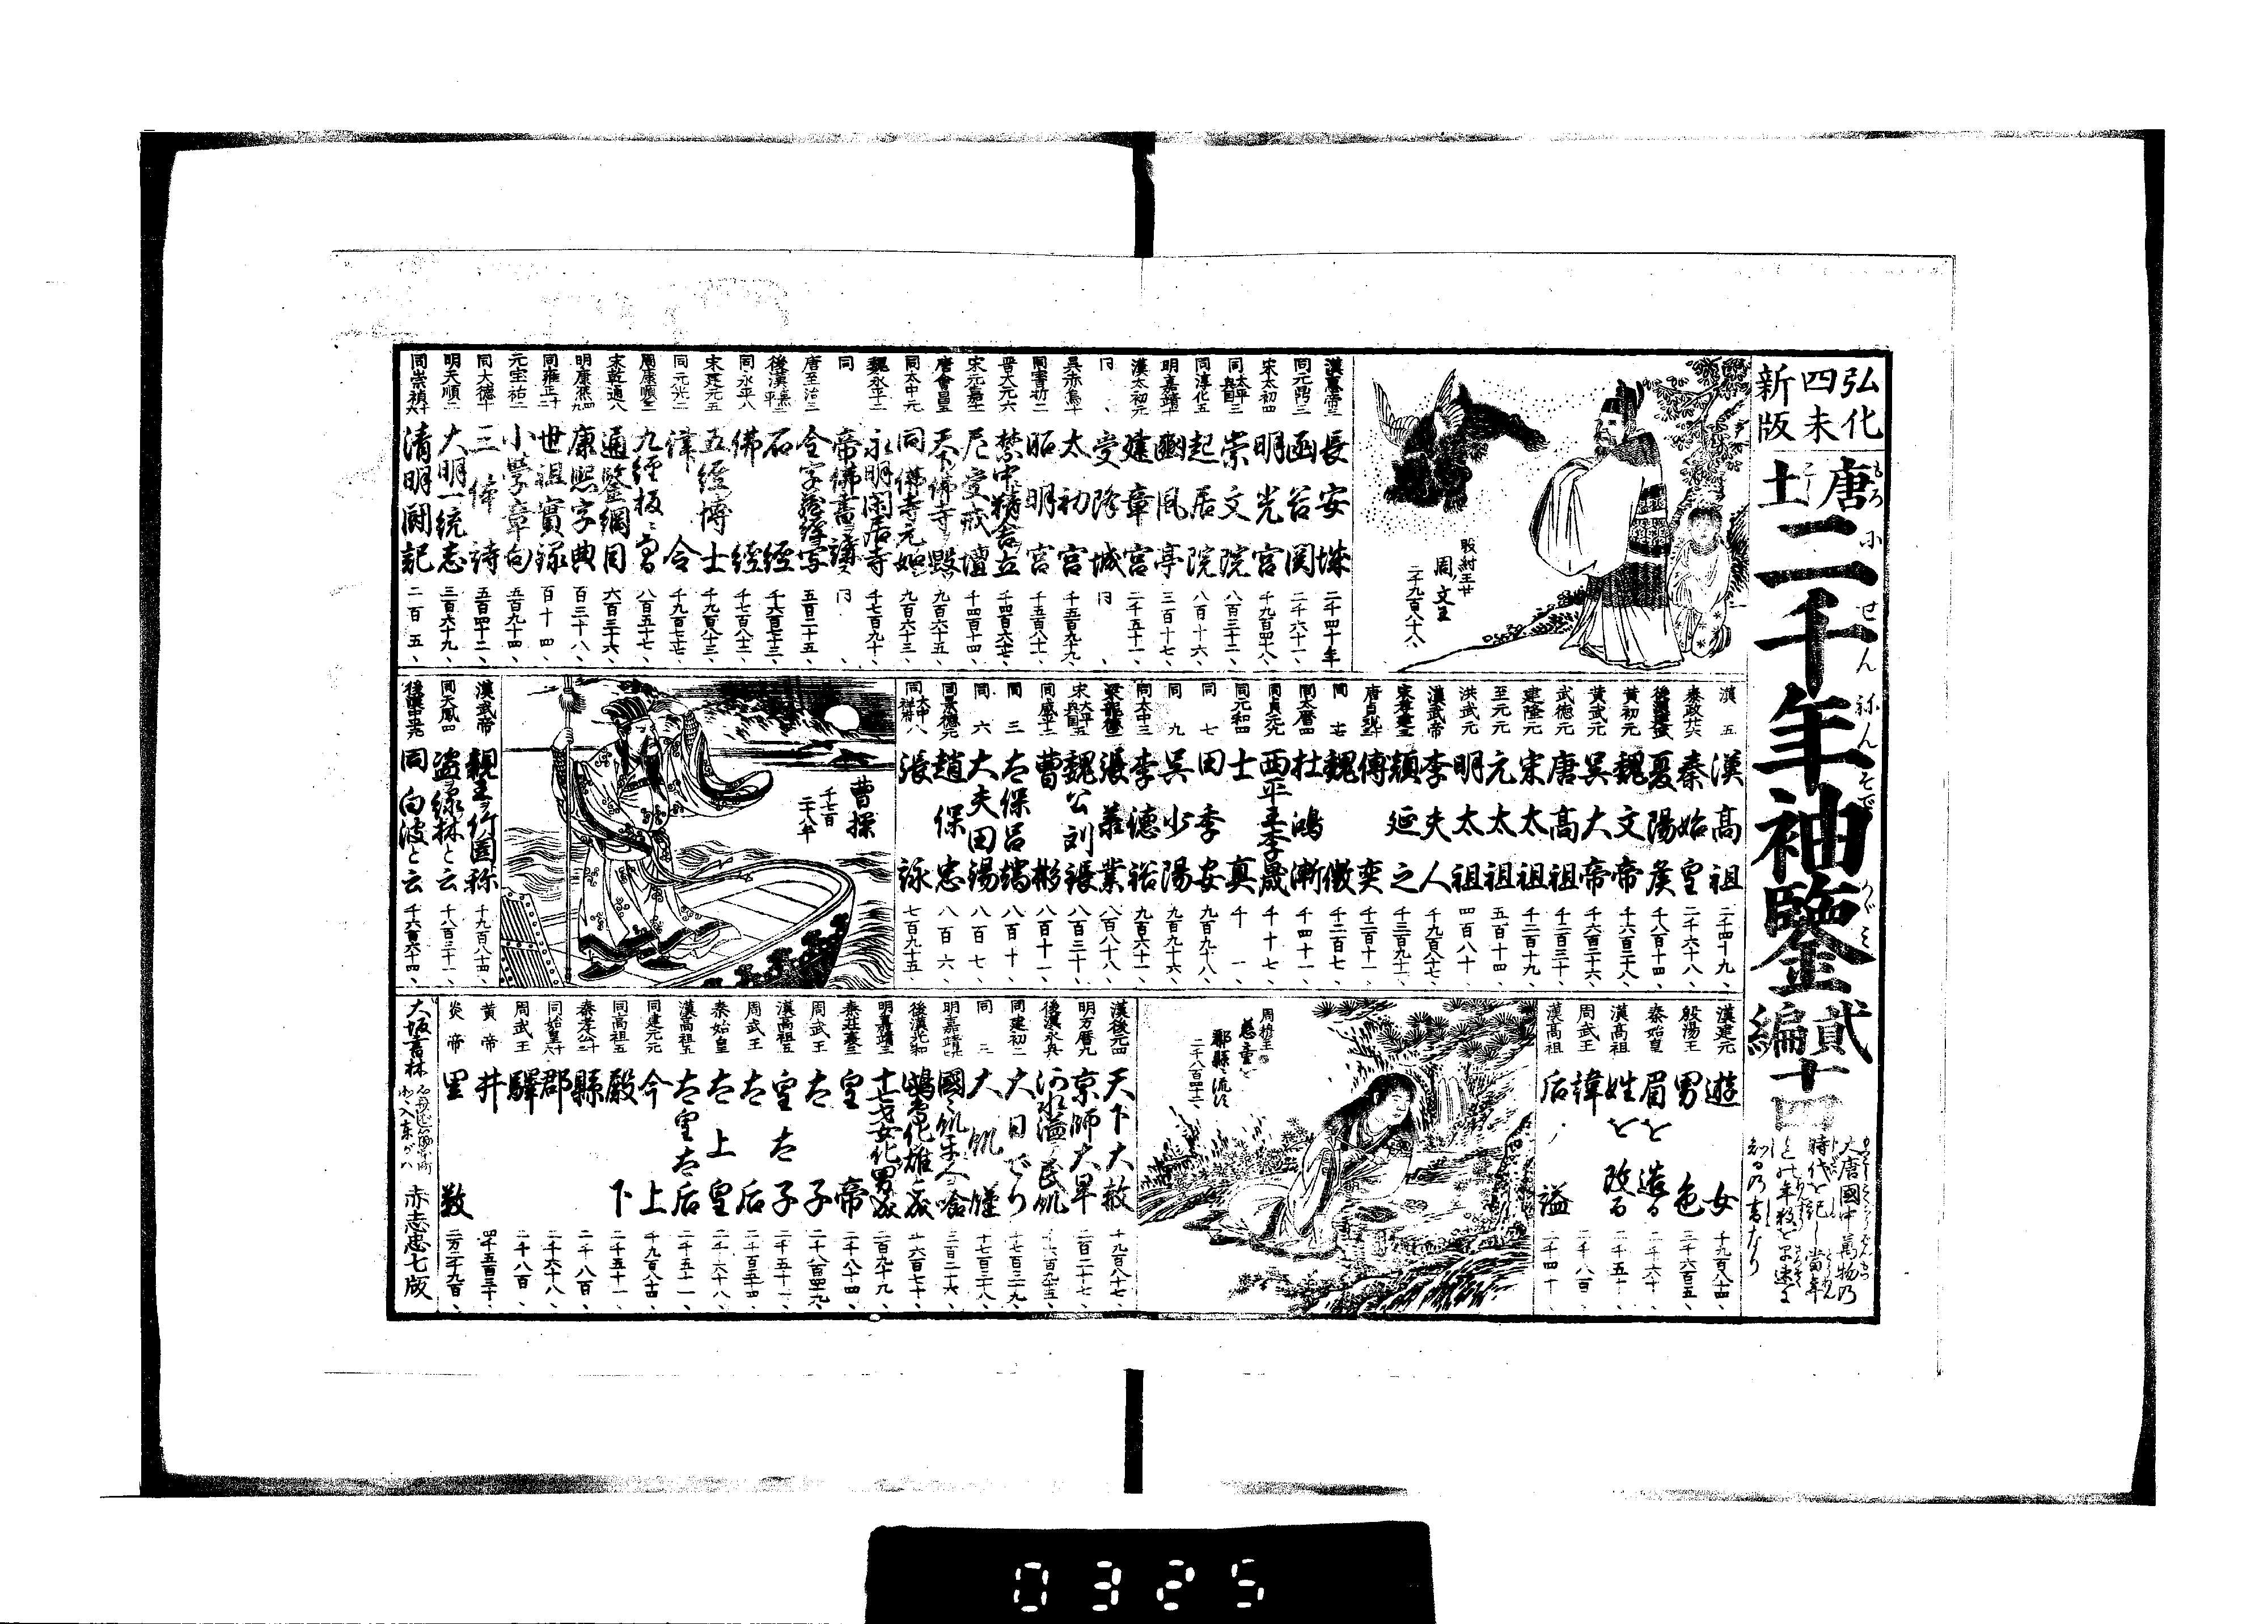 弘化
四未
新版
唐土
もろこし
二千年袖鑒
にせんねんそでかゞみ
貳編
十四
大唐國中萬物乃
時代を記し當年
までの年数を早速に
知る乃書なり
殷紂王廿
周文王
二千九百八十八、
漢惠帝三 長安城 二千四十年
同元鼎三 函谷関 二千六十一、
宋太初四 明光宮 千九百四十八、
同太平興國三 崇文院 八百三十二、
同淳化五 起居院 八百十六、
明嘉靖十 豳風亭 三百十七、
漢太初元 建章宮 二千五十一、
同、 受降城 同、
呉赤烏十 太初宮 千五百九十九、
同宝祚二 昭明宮 千五百八十一
晋大元六 禁中精舎立 千四百六十七、
宋元嘉十一 尼受戒壇 千四百十四、
唐會昌五 天下佛寺毀 九百六十五、
同太中元 同佛寺元如 九百六十三、
魏永平二 永明閑居寺 千七百九十、
同 帝佛書ヲ講ス 同、
唐至治三 金字蔵経写 五百二十五、
後漢熹平 石経 千六百七十三、
同永平八 佛経 千七百八十二、
宋建元五 五經博士 千九百八十三、
同元光二 律令 千九百七十七、
周康順三 九經板ニ言 八百五十七、
宋乾道八 通鑒綱目 六百三十六、
明康熙四九 康熙字典 百三十八、
同雍正十二 世祖實録 百十四、
元宝祐二 小學章句 五百九十四、
同大徳十 三体詩 五百四十二、
明天順二 大明一統志 三百六十九、
同崇禎十六 清明闘記 二百五、
漢五 漢高祖 二千四十九、
秦政廿六 秦始皇 二千六十八、
後漢建武 夏陽侯 千八百十四、
黄初元 魏文帝 千六百二十八、
黄武元 呉大帝 千六百二十六、
武徳元 唐高祖 千二百三十、
建隆元 宋太祖 千二百十九、
至元元 元太祖 五百十四
洪武元 明太祖 四百八十
漢武帝 李夫人 千九百八十七、
宋孝建三 顔延之 千三百九十二、
唐貞観十 傅奕 千二百十一、
同十七 魏徴 千二百七、
同太暦四 杜鴻漸 千四十一
同貞元九 西平王李晟 千十七、
同元和四 士真 千一、
同七 田季安 九百九十八、
同九 呉少陽 九百九十六、
同太中三 李徳裕 九百六十一、
梁龍徳三 張義業 八百八十八、
宋太平興国五 魏公刘張 八百三十、
同咸平十二 曹彬 八百十一、
同三 太保呂端 八百十、
同六 大夫田錫 八百七、
同景徳元 趙保忠 八百六、
同大中祥符八 張詠 七百九十五、
曹操
千七百
二十八年
漢武帝 親王ヲ竹園称 千九百八十四、
同天鳳四 盗ヲ緑林と云 千八百三十一、
後漢中平元 同白波と云 千六百六十四、
漢建元 遊女 十九百八十四、
殷湯王 男色 三千六百五、
秦始皇 眉を造る 二千六十、
漢高祖 姓を改る 二千五十、
周武王 諱 二千八百、
漢高祖 后ノ謚 二千四十、
周穆王
慈童を
鄴縣ニ流ス
二千八百四十二、
漢後元四 天下大赦 十九百八十七、
明万暦九 京師大旱 二百二十七、
後漢永興 河水溢ノ民飢 千六百九十五、
同建初二 大日でり 千七百三十九、
同三 大飢饉 十七百三十八、
明嘉靖 國ニ飢来人ヲ喰 三百二十六、
後漢光和 鴟烏化雄ニ成 十六百七十、
明嘉靖三 十七才女化男成 二百九十九、
秦荘襄三 皇帝 二千八十四、
周武王 太子 二千八百四十九、
漢高祖五 皇太子 二千五十一、
周武王 太后 二千百五十四、
秦始皇 太上皇 二千六十八、
漢高祖五 太皇太后 二千五十一、
同建元元 今上 千九百八十四、
同高祖五 殿下 二千五十一、
秦孝公三十 縣 二千八百、
同始皇廿六 郡 二千六十八、
周武王 驛 二千八百、
黄帝 井 四千五百三十、
炎帝 里数 二万二千九百、
大坂書林 赤志忠七版
0325